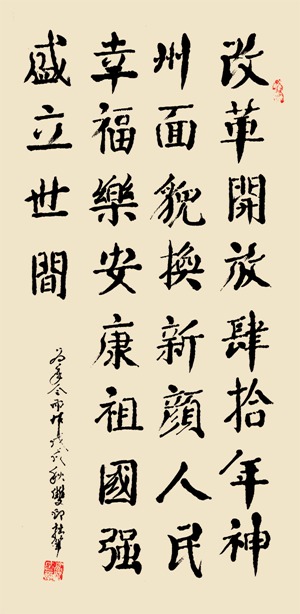 改革開放肆拾年神
州面貌換新顔人民
幸福樂安康祖國强
盛立世間